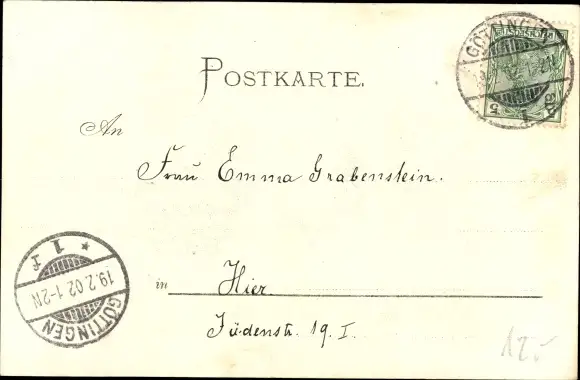 GÖTTINGEN
POSTKARTE.
An
Frau Emma Grabenstein.
in Hier.
Jüdenstr. 19. I.
GÖTTINGEN
19.2.02.1-2N
* 1 f
12.-